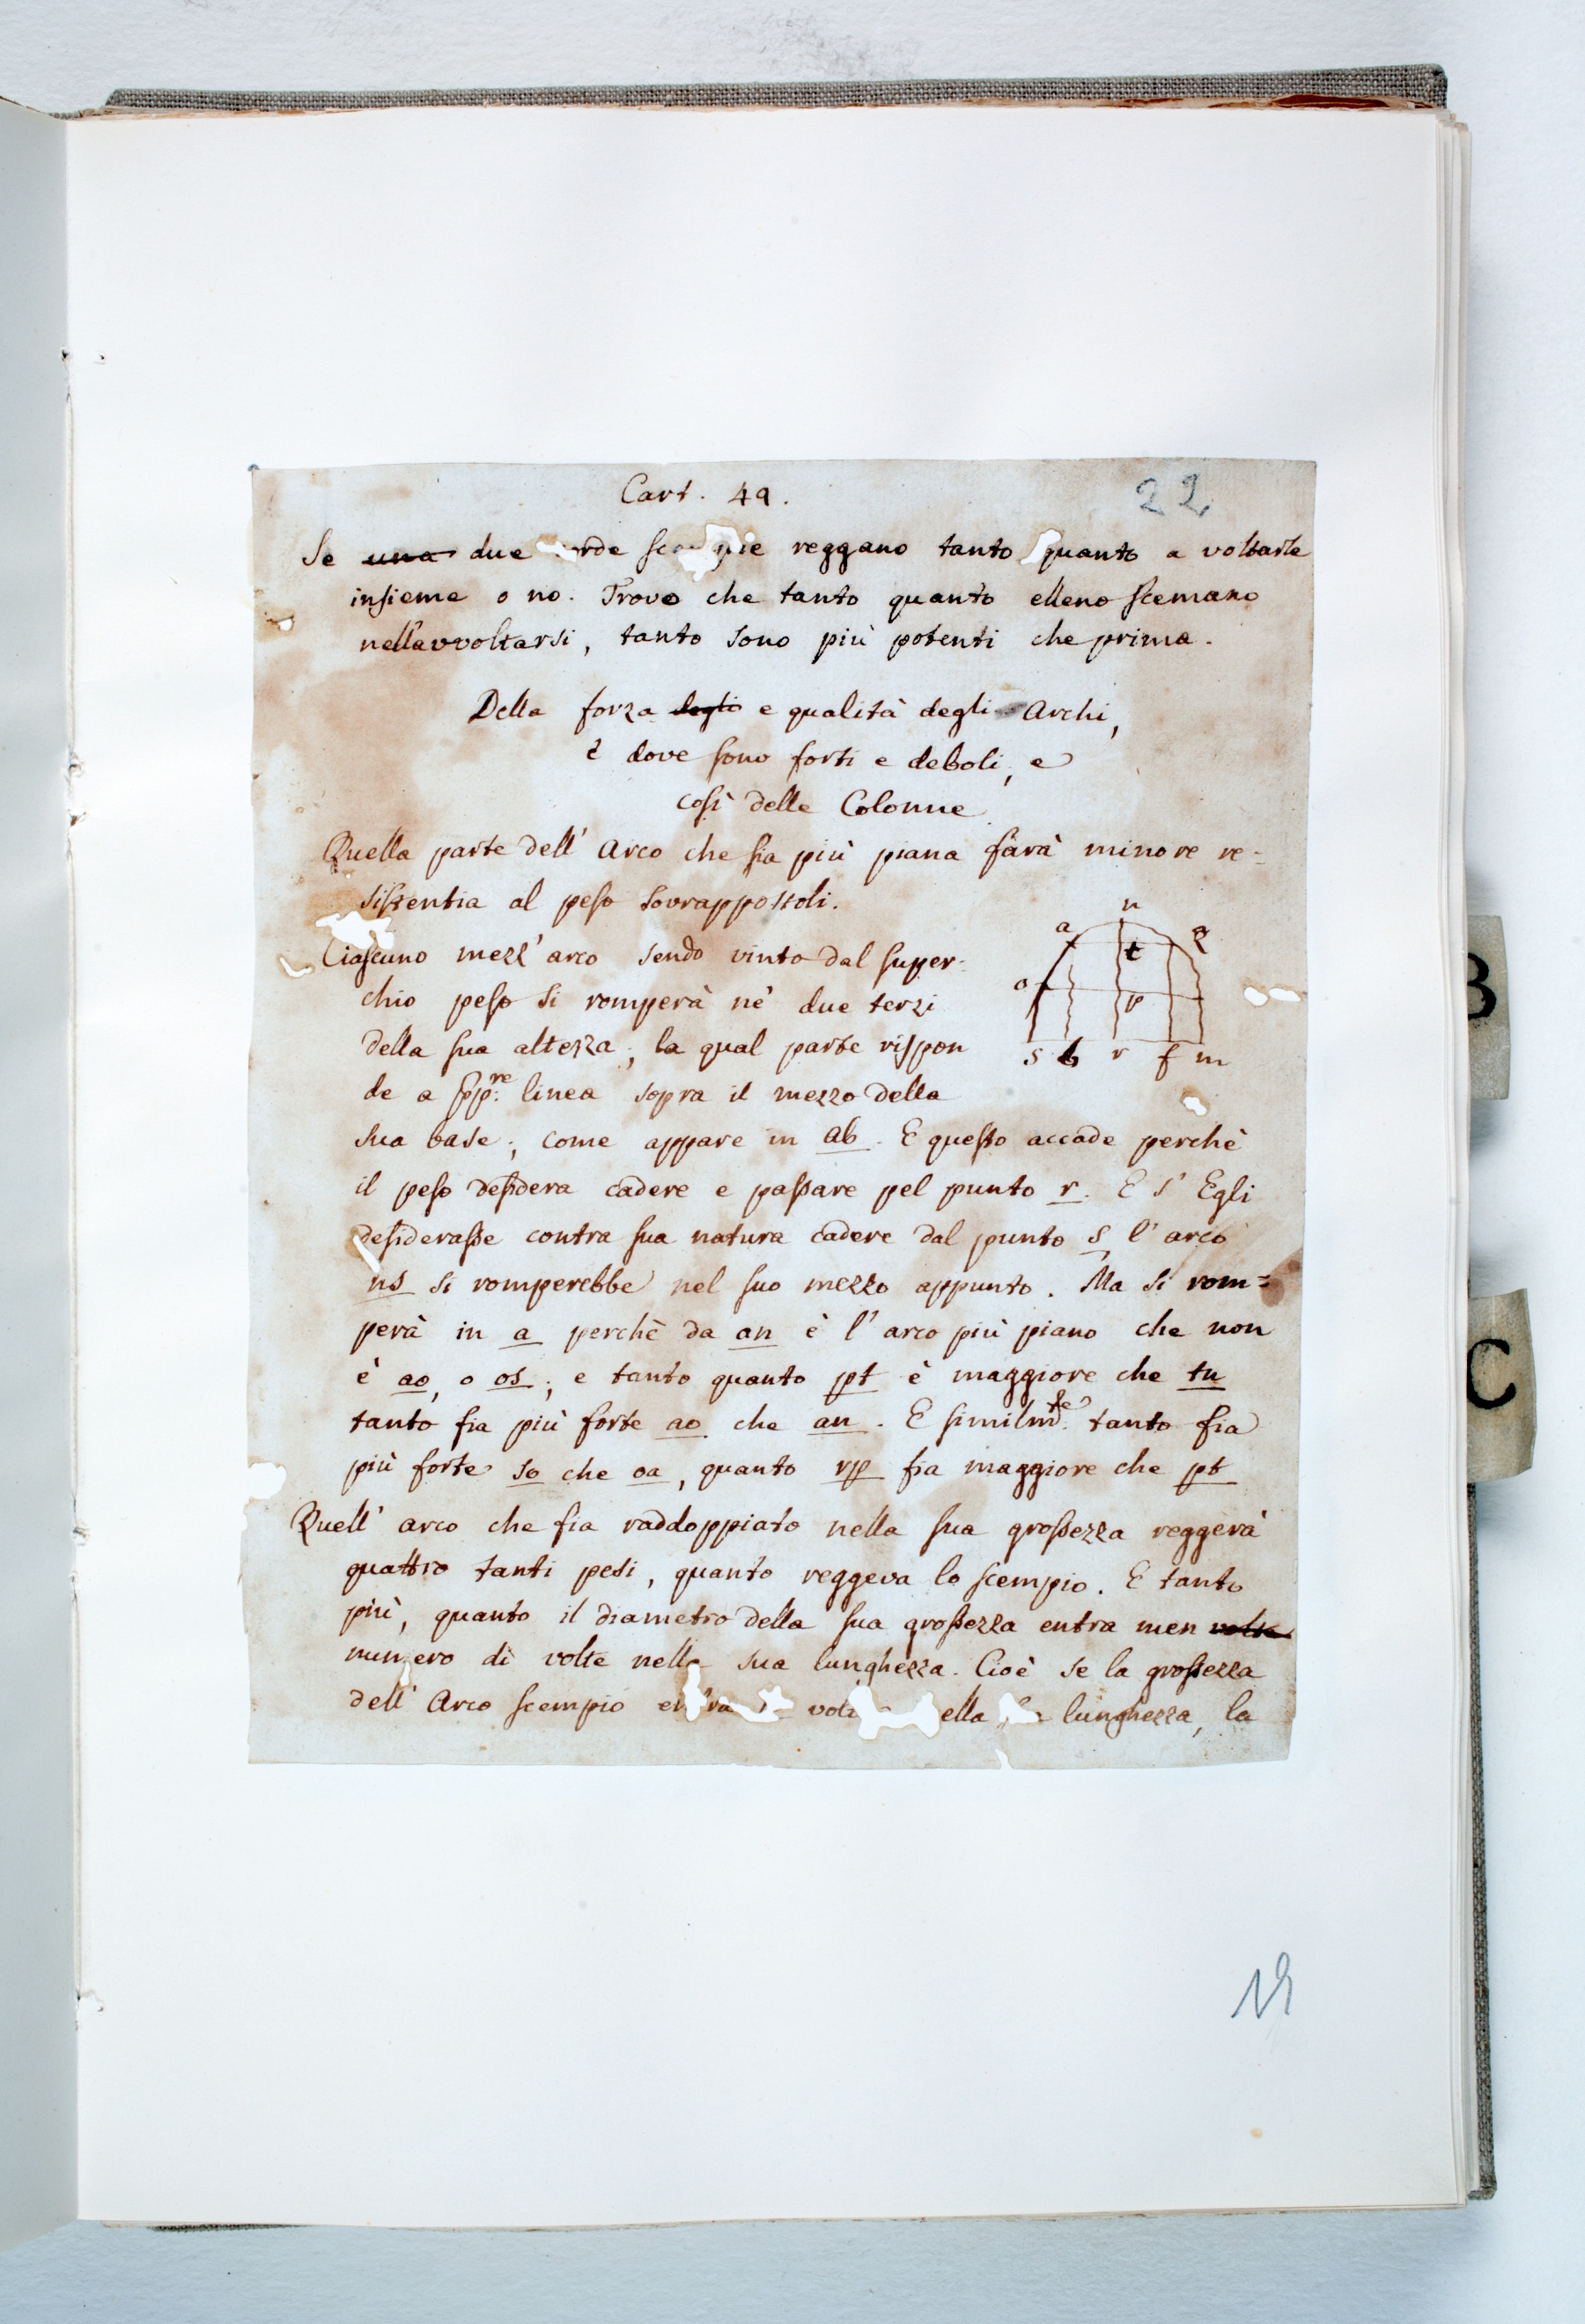 Cart. 49.
22
Se una due scempie reggano tanto quanto a voltarle
insieme o no. Trovo che tanto quanto elleno scemano
nell'avvoltarsi, tanto sono più potenti che prima.
Della forza degli e qualità degli Archi,
e dove sono forti e deboli, e
così delle Colonne
Quella parte dell' Arco che fia più piana farà minore re-
sistentia al peso sovrappostoli.
n
a
q
t
o
p
s b r f m
Ciascuno mezz' arco sendo vinto dal super-
chio peso si romperà nè due terzi
della sua altezza; la qual parte rispon
de a Ppre. linea sopra il mezzo della
sua base; come appare in ab. E questo accade perchè
il peso desidera cadere e passare pel punto r. E s' Egli
desiderasse contra sua natura cadere dal punto s, l' arco
ns si romperebbe nel suo mezzo appunto. Ma si rom=
perà in a perchè da an è l' arco più piano che non
è ao, o os; e tanto quanto pt è maggiore che tn
tanto fia più forte ao che an. E similmte. tanto fia
più forte so che oa, quanto rp fia maggiore che pt
Quell' arco che fia raddoppiato nella sua grossezza reggerà
quattro tanti pesi, quanto reggeva lo scempio. E tanto
più, quanto il diametro della sua grossezza entra men volte
numero di volte nella sua lunghezza. Cioè se la grossezza
dell' Arco scempio entra ella lunghezza, la
19
B
C